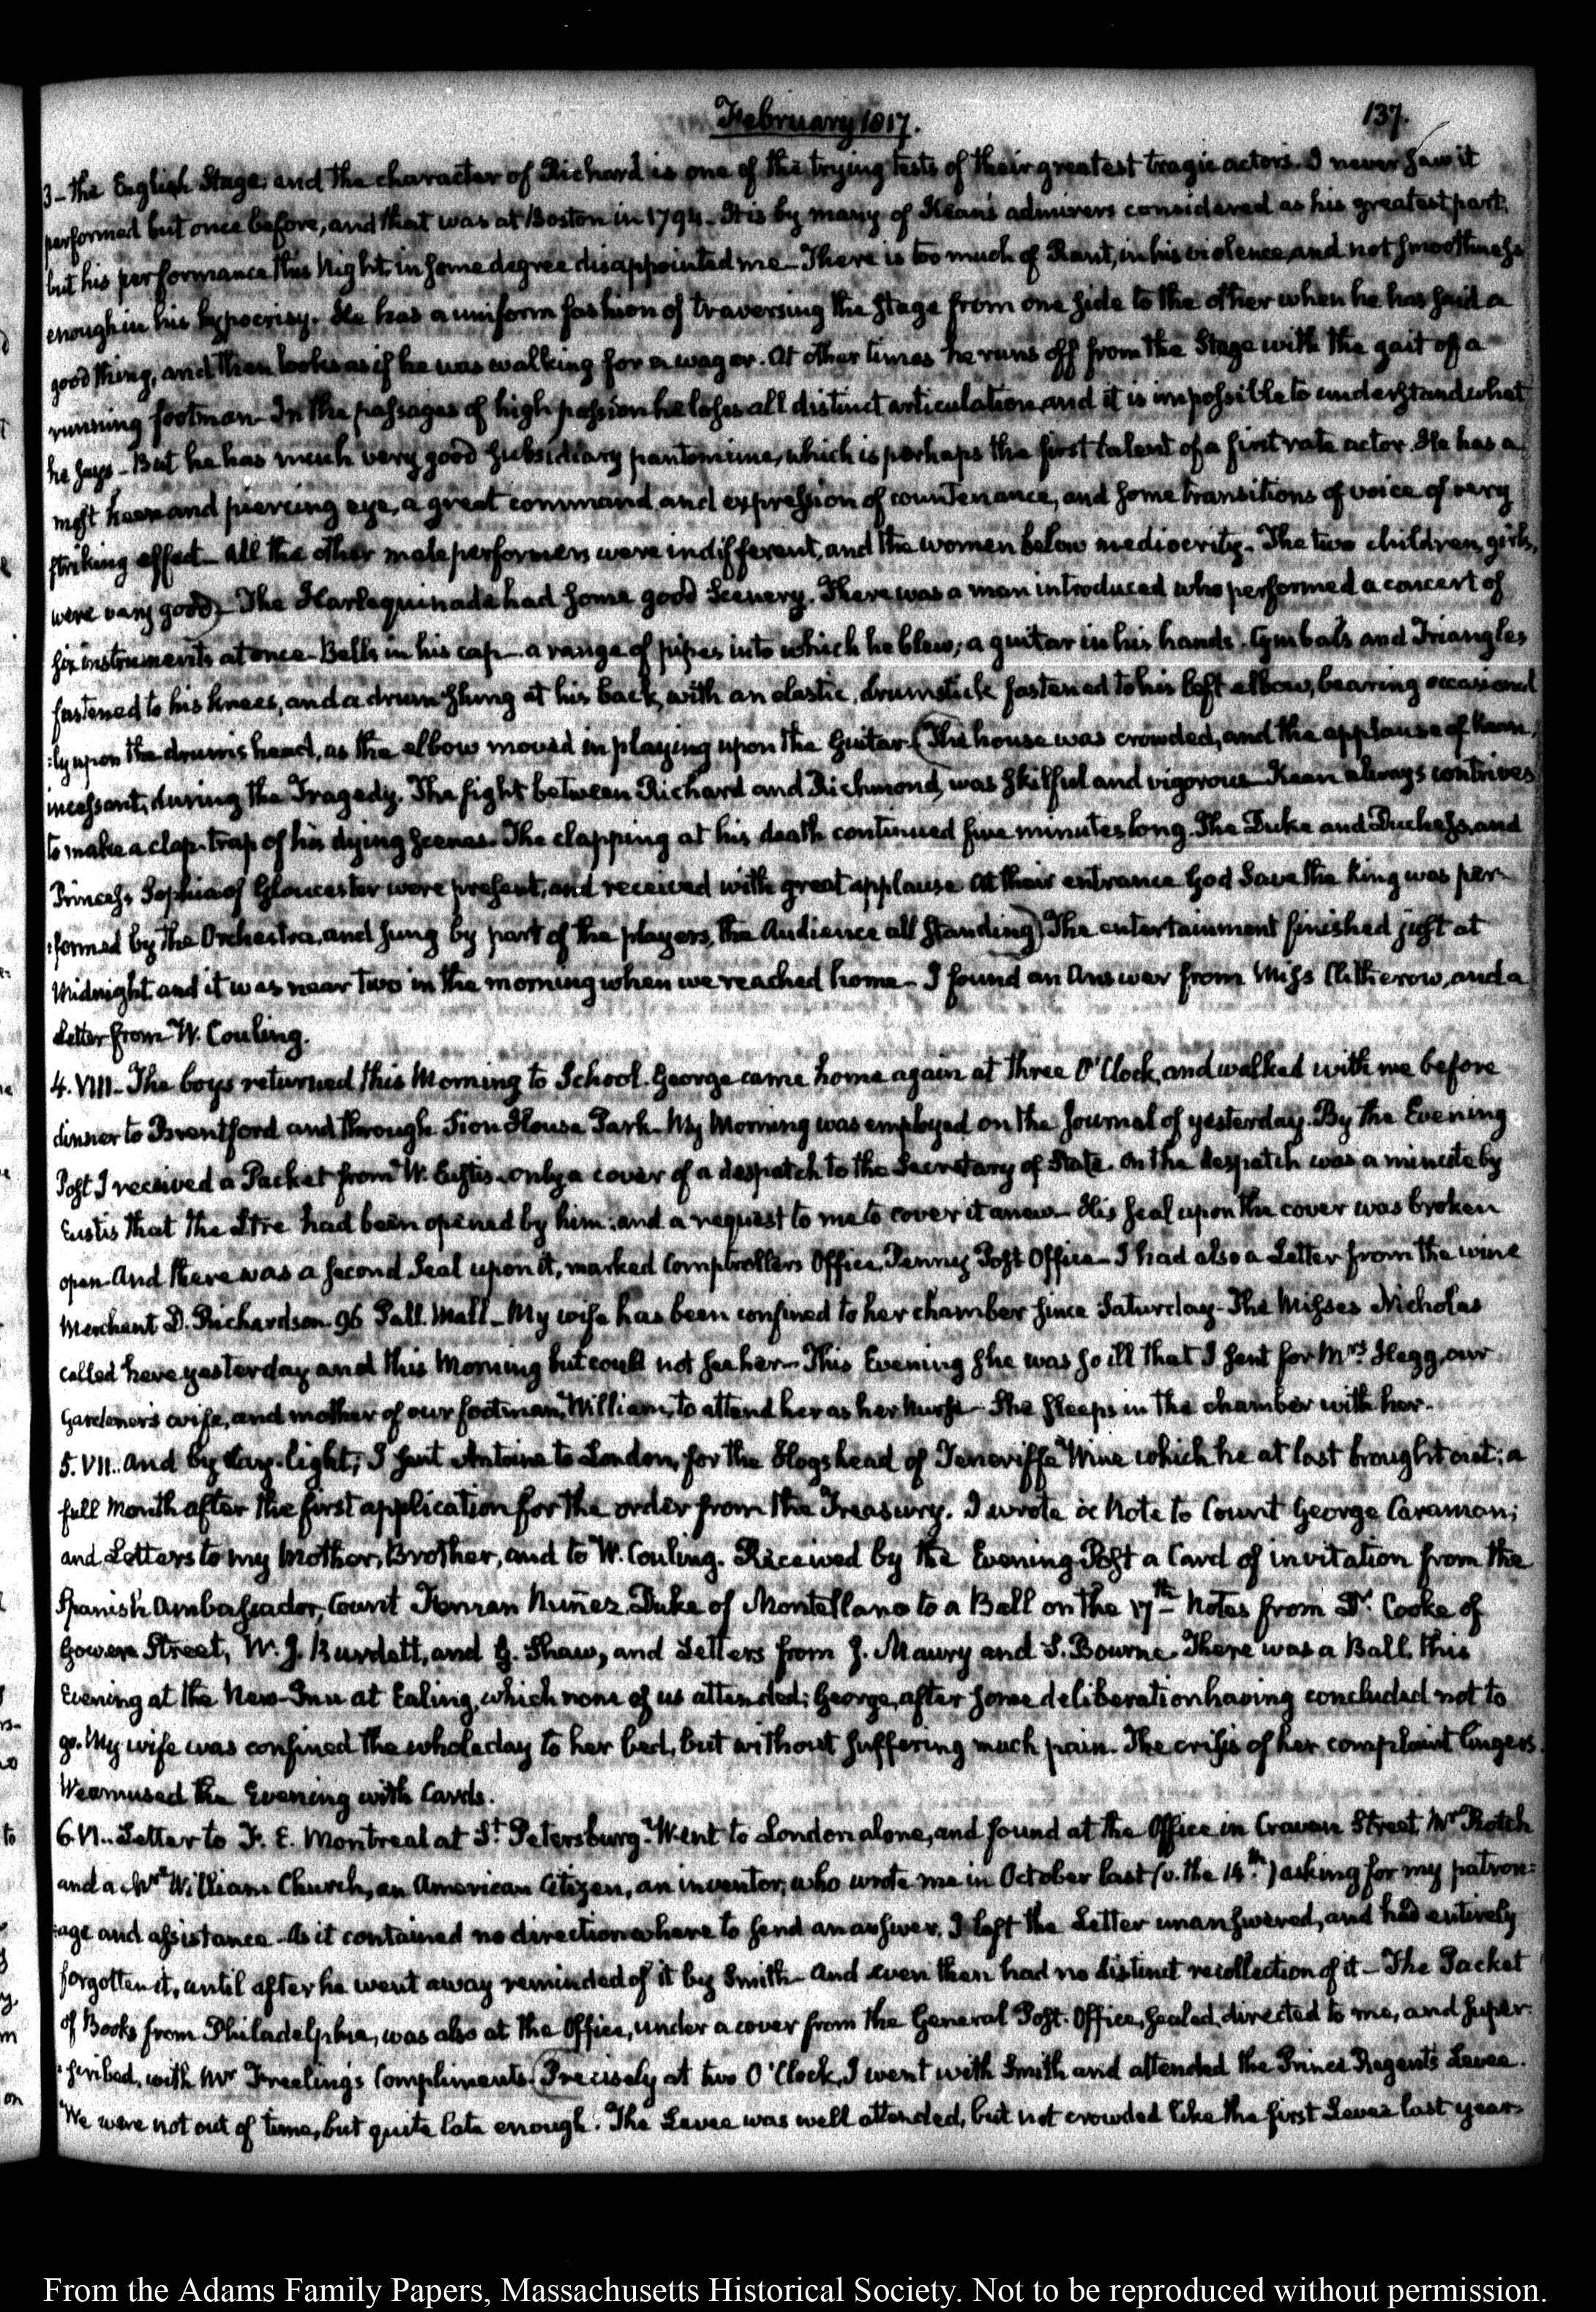 February 1817.
137.
3 - the English Stage, and the character of Richard is one of the trying tests of their greatest tragic actors. I never saw it
performed but once before, and that was at Boston in 1794 - It is by many of Kean's admirers considered as his greatest part,
but his performance this Night, in some degree disappointed me - There is too much of Rant, in his violence, and not smoothness
enough in his hypocrisy. He has a uniform fashion of traversing the stage from one side to the other when he has said a
good thing, and then looks as if he was walking for a wager. At other times he runs off from the Stage with the gait of a
running footman - In the passages of high passion he loses all distinct articulation and it is impossible to understand what
he says - But he has much very good subsidiary pantomime, which is perhaps the first talent of a first rate actor. He has a
most keen and piercing eye, a great command and expression of countenance, and some transitions of voice of very
striking effect - All the other male performers were indifferent, and the women below mediocrity - The two children, girls,
were very good) - The Harlequinade had some good Scenery. There was a man introduced who performed a concert of
six instruments at once - Bells in his cap - a range of pipes into which he blew; a guitar in his hands. Cymbals and Triangles
fastened to his knees, and a drum slung at his back, with an elastic drumstick fastened to his left elbow, bearing occasional
:ly upon the drum's head, as the elbow moved in playing upon the Guitar (The house was crowded, and the applause of Kean,
incessant, during the Tragedy. The fight between Richard and Richmond, was skilful and vigorous - Kean always contrives
to make a clap-trap of his dying scenes - The clapping at his death continued five minutes long. The Duke and Duchess, and
Princess Sophia of Gloucester were present, and received with great applause At their entrance God Save the King was per-
:formed by the Orchestra, and sung by part of the players, the Audience all standing) The entertainment finished just at
Midnight, and it was near two in the morning when we reached home - I found an Answer from Miss Clitherow, and a
Letter from W. Couling.
4. VIII - The boys returned this Morning to School. George came home again at three O'Clock, and walked with me before
dinner to Brentford and through Sion House Park - My Morning was employed on the Journal of yesterday. By the Evening
Post I received a Packet from W. Eustis - only a cover of a despatch to the Secretary of State - On the despatch was a minute by
Eustis that the Ltre had been opened by him: and a request to me to cover it anew - His seal upon the cover was broken
open - And there was a second Seal upon it, marked Comptrollers Office, Penny Post Office - I had also a Letter from the wine
Merchant D. Richardson 96 Pall. Mall - My wife has been confined to her chamber since Saturday - The Misses Nicholas
called here yesterday and this Morning but could not see her - This Evening she was so ill that I sent for Mrs. Hegg, our
Gardener's wife, and mother of our footman, William, to attend her as her nurse - She sleeps in the chamber with her.
5. VII.. And by day-light; I sent Antoine to London, for the Hogshead of Teneriffe Wine which he at last brought out; a
full Month after the first application for the order from the Treasury. I wrote a Note to Count George Caraman;
and Letters to my Mother, Brother, and to W. Couling. Received by the Evening Post a Card of invitation from the
Spanish Ambassador, Count Fernan Nuñez Duke of Montellano to a Ball on the 17th - Notes from Dr. Cooke of
Gower Street, W. J. Burdett, and G. Shaw, and Letters from J. Maury and S. Bourne. There was a Ball, this
Evening at the New-Inn at Ealing, which none of us attended; George, after some deliberation having concluded not to
go. My wife was confined the whole day to her bed, but without suffering much pain. The crisis of her complaint lingers.
We amused the Evening with Cards.
6. VI.. Letter to F. E. Montreal at St. Petersburg. Went to London alone, and found at the Office in Craven Street, Mr Rotch
and a Mr William Church, an American Citizen, an inventor, who wrote me in October last (v. the 14th.) asking for my patron:
:age and assistance - As it contained no direction where to send an answer, I left the Letter unanswered, and had entirely
forgotten it, until after he went away reminded of it by Smith - And even then had no distinct recollection of it - The Packet
of Books from Philadelphia, was also at the Office, under a cover from the General Post-Office, sealed, directed to me, and super:
:scribed, with Mr Freeling's Compliments. (Precisely at two O'Clock, I went with Smith and attended the Prince Regent's Levee.
We were not out of time, but quite late enough. The Levee was well attended, but not crowded like the first Levee last year.
From the Adams Family Papers, Massachusetts Historical Society. Not to be reproduced without permission.